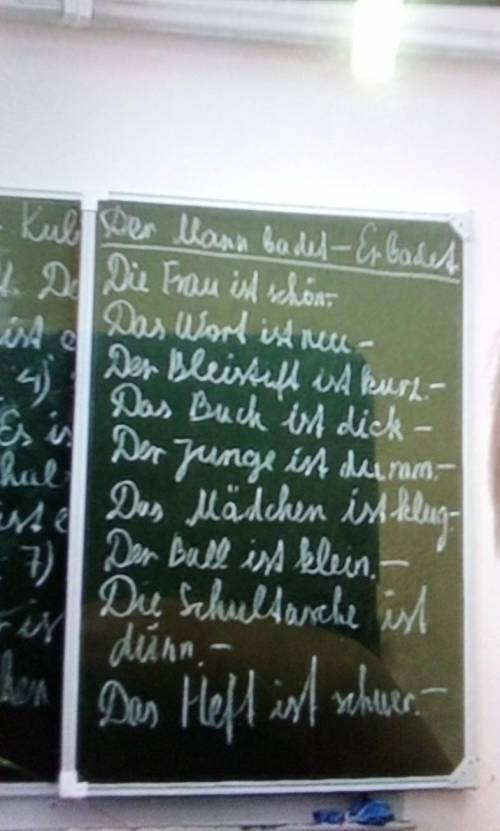 Der Mann badet – Er badet.
Die Frau ist schön. –
Das Wort ist neu –
Der Bleistift ist kurz. –
Das Buch ist dick –
Der Junge ist dumm. –
Das Mädchen ist klug –
Der Ball ist klein. –
Die Schultasche ist
dünn. –
Das Heft ist schwer. –
Kub
ist
4)
Es is
ist
7)
ist